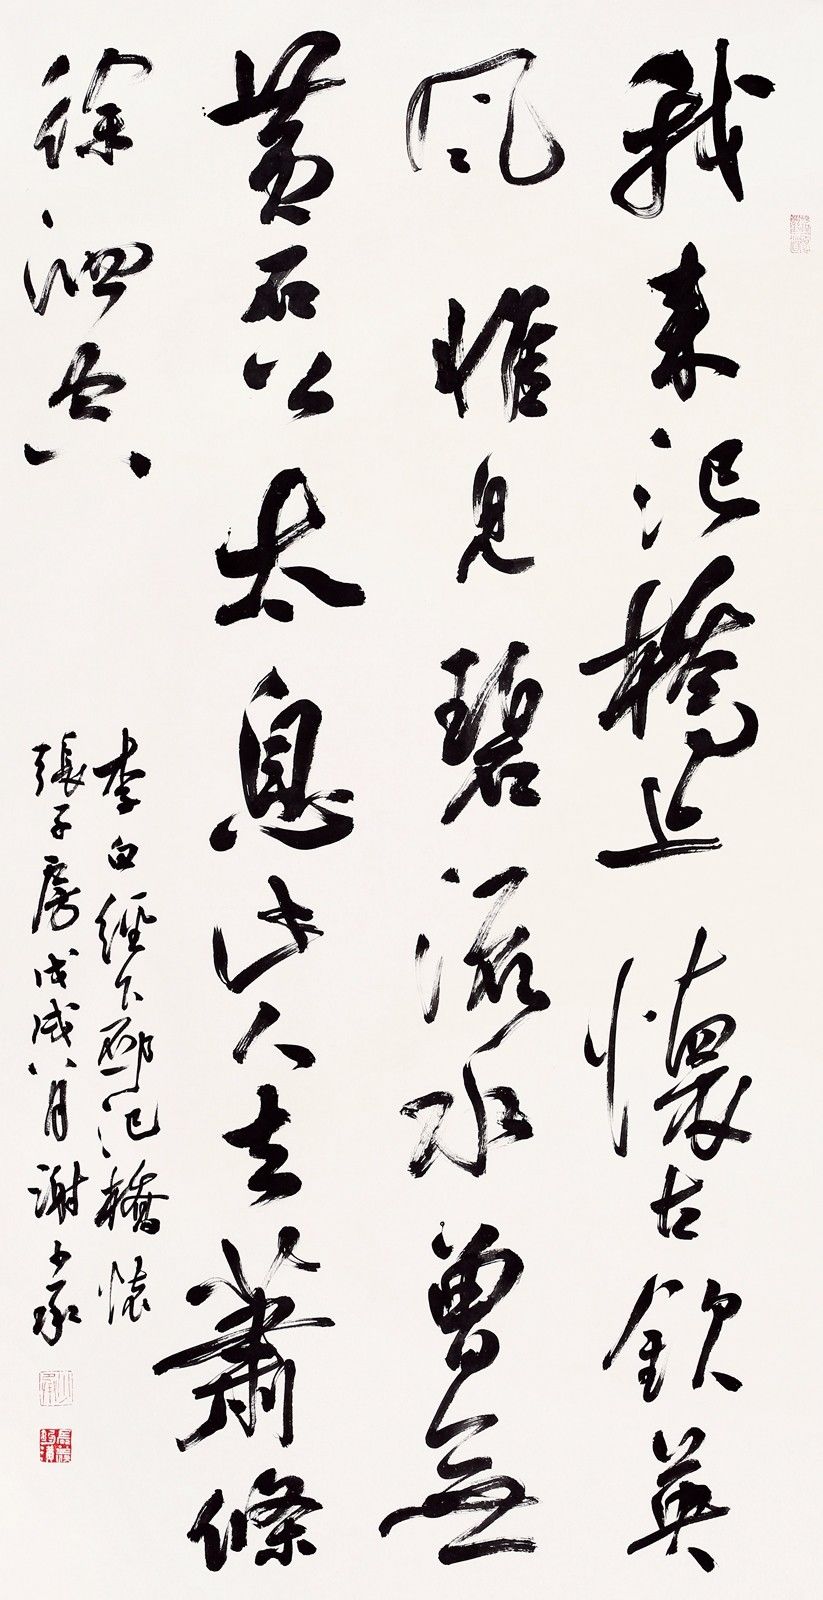 我来圯橋上懷古欽英
風惟見碧流水曾無
黄石公太息此人去蕭條
徐泗空
李白經下邳圯橋懷
張子房戊戌八月謝少承